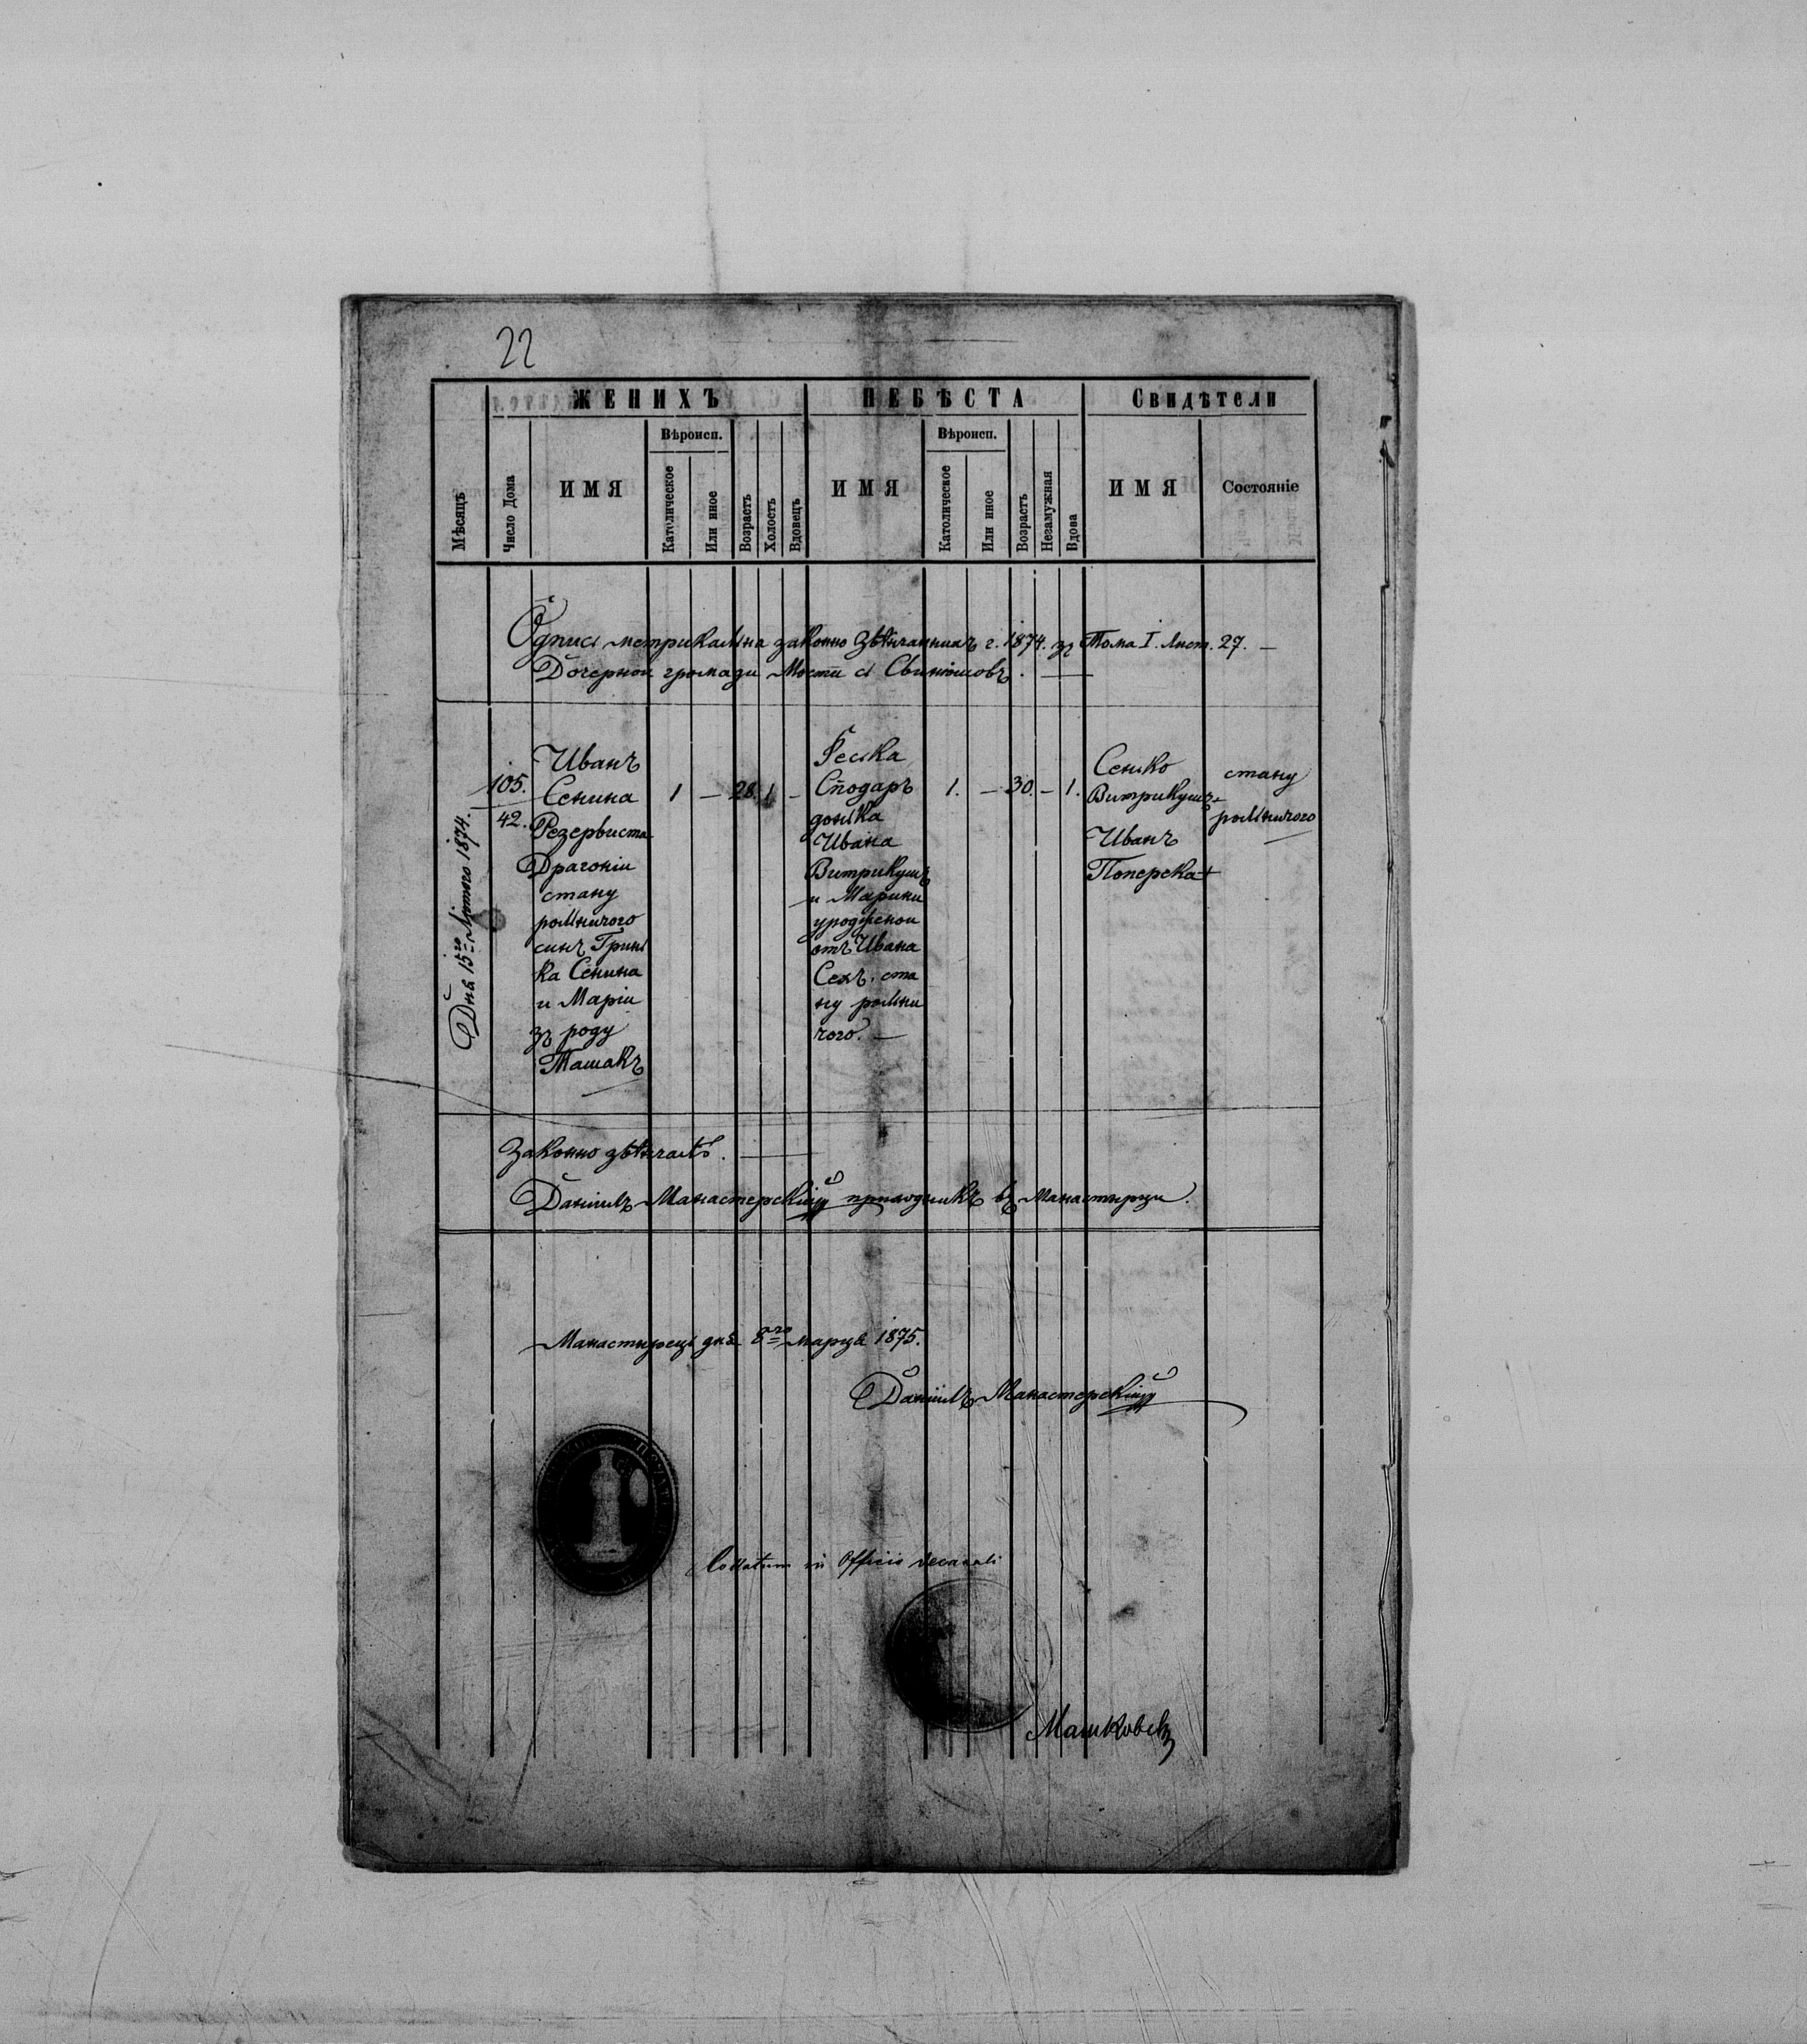 22
ЖЕНИХЪ НЕВѢСТА Свидѣтели
Мѣсяцъ
Число Дома
ИМЯ
Вѣроисп.
Католическое
Или иное
Возрастъ
Холостъ
Вдовецъ
ИМЯ
Вѣроисп.
Католическое
Или иное
Возрастъ
Незамужная
Вдова
ИМЯ
Состояніе
Одпись метрикальна законно звѣнчанныхъ г. 1874. зъ Тома I. Лист. 27. —
Дочерной громади Мости
Днѣ 15го Лютого 1874.
105.
42.
Иванъ
Сенина
Резервиста
Драгоніи
стану
рольничого
синъ Гринь
ка Сенина
и Маріи
зъ роду
Ташакъ
1
—
28.
1
—
Феська
Сподаръ
донька
Ивана
Витрикушъ
и Марини
уродженои
отъ Ивана
Сехъ. ста
ну рольни
чого. —
1.
—
30.
—
1.
Сенько
Витрикушъ+
Иванъ
Поперека+
стану
рольничого
Законно звѣнчалъ. —
Даніилъ Манастерскій приходникъ въ Манастырци.
Манастырець днѣ 8го марця 1875.
Даніилъ Манастерскій
Collatum in Officio decanali